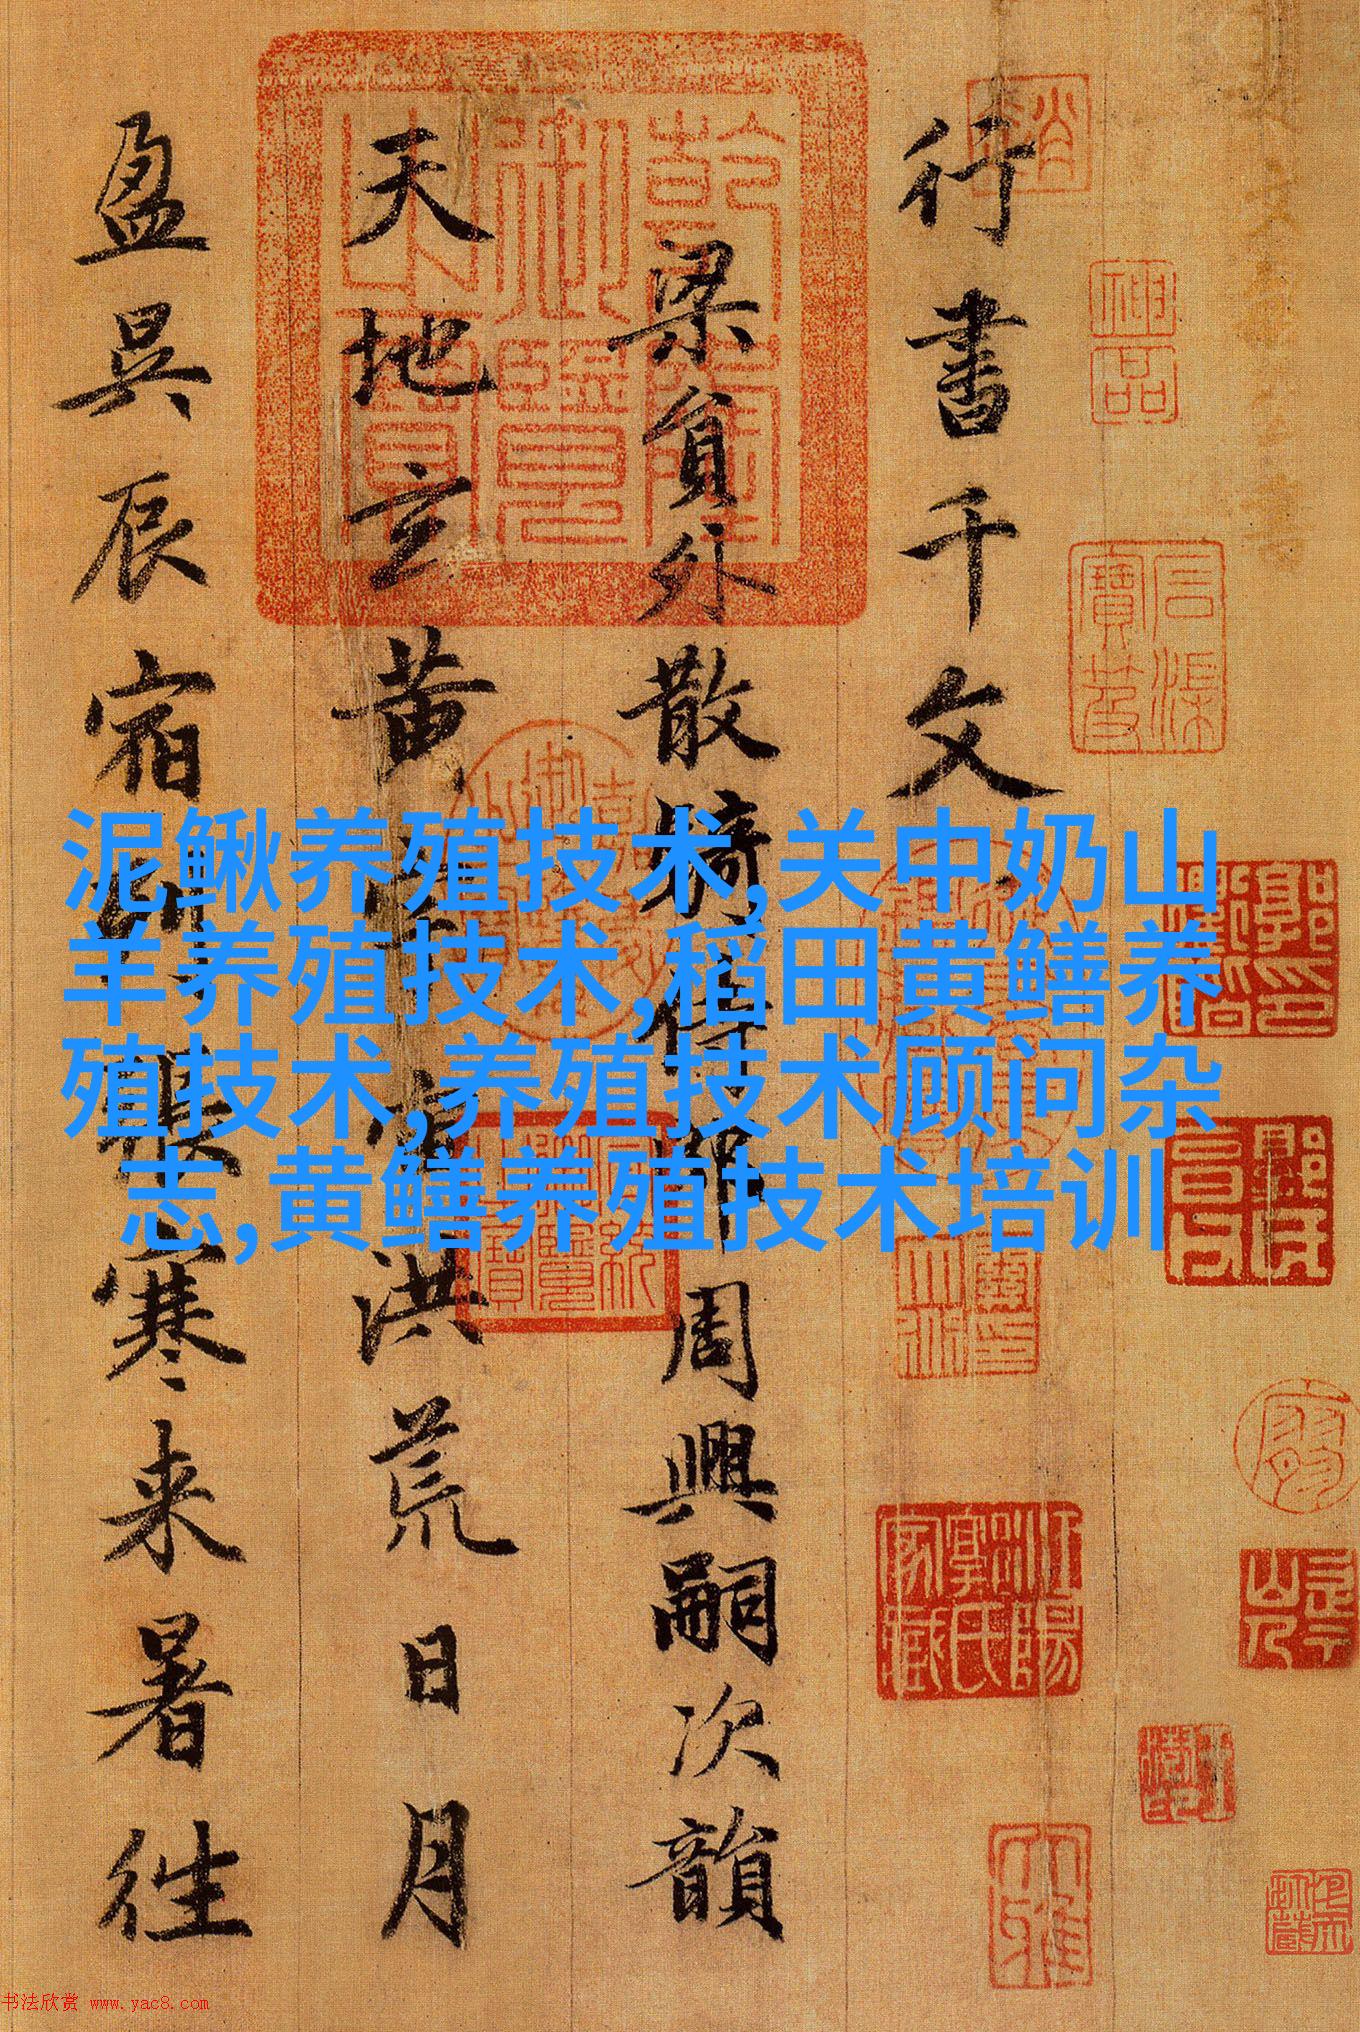 行書千文
梁員外散騎侍郎周興嗣次韻
天地玄黄宇宙洪荒日月
盈昃辰宿列張寒来暑往
泥鳅养殖技术,关中奶山
羊养殖技术,稻田黄鳝养
殖技术,养殖技术顾问杂
志,黄鳝养殖技术培训
乾隆御覽之寶
神品
书法欣赏 www.yac8.com